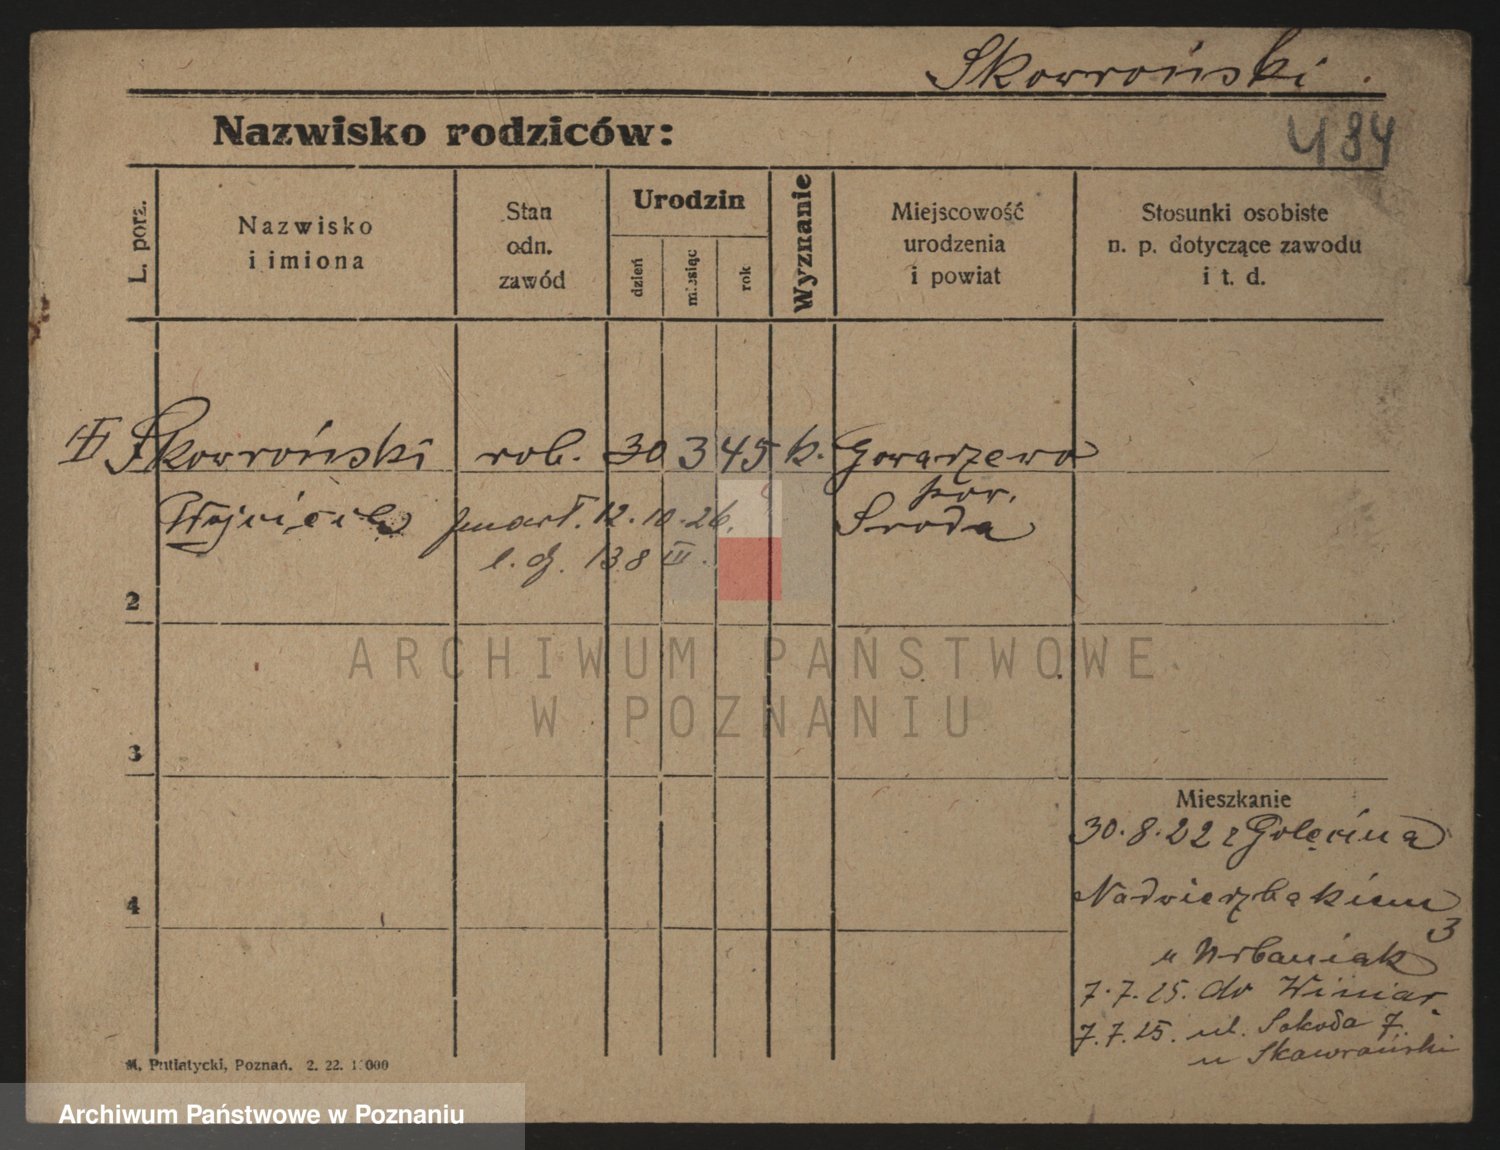 Skowroński
484
Nazwisko rodziców:
L. porz.
Nazwisko
i imiona
Stan
odn.
zawód
Urodzin
dzień
miesiąc
rok
Wyznanie
Miejscowość
urodzenia
i powiat
Stosunki osobiste
n. p. dotyczące zawodu
i t. d.
Skowroński rob. 30 3 45 k. Gowarzewo
pow.
Wojciech zmarł. 12.10.26. Środa
l. dz. 138 III.
2
3
4
Mieszkanie
30.8.22 z Golęcina
Nadwierzbakiem
3
u Urbaniak
7.7.25. do Winiar.
7.7.25. ul. Sokoła 7.
u Skowroński
M. Putiatycki, Poznań. 2. 22.
ARCHIWUM PAŃSTWOWE
W POZNANIU
Archiwum Państwowe w Poznaniu